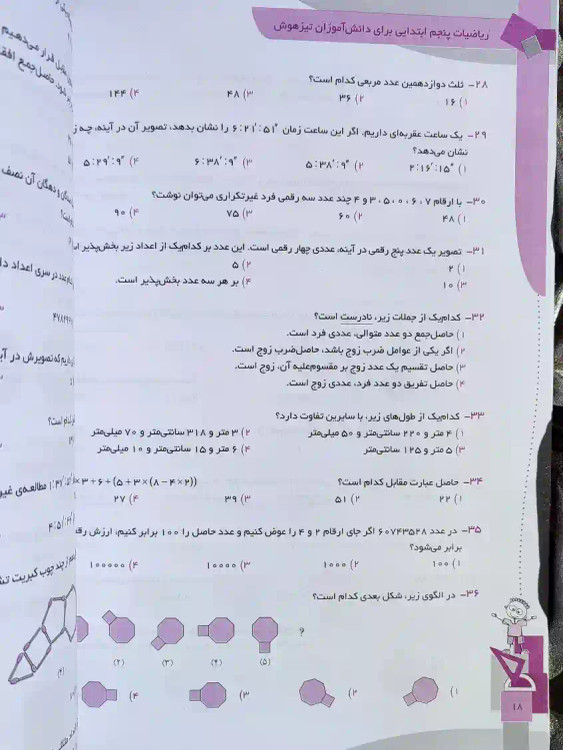 ریاضیات پنجم ابتدایی برای دانش‌آموزان تیزهوش
۲۸- ثلث دوازدهمین عدد مربعی کدام است؟
۱) ۱۶ ۲) ۳۶ ۳) ۴۸ ۴) ۱۴۴
۲۹- یک ساعت عقربه‌ای داریم. اگر این ساعت زمان ۶:۲۱′:۵۱″ را نشان بدهد، تصویر آن در آینه، چه
نشان می‌دهد؟
۱) ۲:۱۶′:۱۵″ ۲) ۵:۳۸′:۹″ ۳) ۶:۳۸′:۹″ ۴) ۵:۲۹′:۹″
۳۰- با ارقام ۷، ۶، ۰، ۵، ۳ و ۴ چند عدد سه رقمی فرد غیرتکراری می‌توان نوشت؟
۱) ۴۸ ۲) ۶۰ ۳) ۷۵ ۴) ۹۰
۳۱- تصویر یک عدد پنج رقمی در آینه، عددی چهار رقمی است. این عدد بر کدام‌یک از اعداد زیر بخش‌پذیر
۱) ۲ ۲) ۵
۳) ۱۰ ۴) بر هر سه عدد بخش‌پذیر است.
۳۲- کدام‌یک از جملات زیر، نادرست است؟
۱) حاصل‌جمع دو عدد متوالی، عددی فرد است.
۲) اگر یکی از عوامل ضرب زوج باشد، حاصل‌ضرب زوج است.
۳) حاصل تقسیم یک عدد زوج بر مقسوم‌علیه آن، زوج است.
۴) حاصل تفریق دو عدد فرد، عددی زوج است.
۳۳- کدام‌یک از طول‌های زیر، با سایرین تفاوت دارد؟
۱) ۴ متر و ۲۲۰ سانتی‌متر و ۵۰ میلی‌متر ۲) ۳ متر و ۳۱۸ سانتی‌متر و ۷۰ میلی‌متر
۳) ۵ متر و ۱۲۵ سانتی‌متر ۴) ۶ متر و ۱۵ سانتی‌متر و ۱۰ میلی‌متر
۳۴- حاصل عبارت مقابل کدام است؟ ×۳+۶+(۵+۳×(۸-۴×۲))
۱) ۲۲ ۲) ۵۱ ۳) ۳۹ ۴) ۲۷
۳۵- در عدد ۶۰۷۴۳۵۲۸ اگر جای ارقام ۲ و ۴ را عوض کنیم و عدد حاصل را ۱۰۰ برابر کنیم، ارزش
برابر می‌شود؟
۱) ۱۰۰ ۲) ۱۰۰۰ ۳) ۱۰۰۰۰ ۴) ۱۰۰۰۰۰
۳۶- در الگوی زیر، شکل بعدی کدام است؟
؟
(۲) (۳) (۴) (۵)
۱) ۲) ۳) ۴)
۱۸